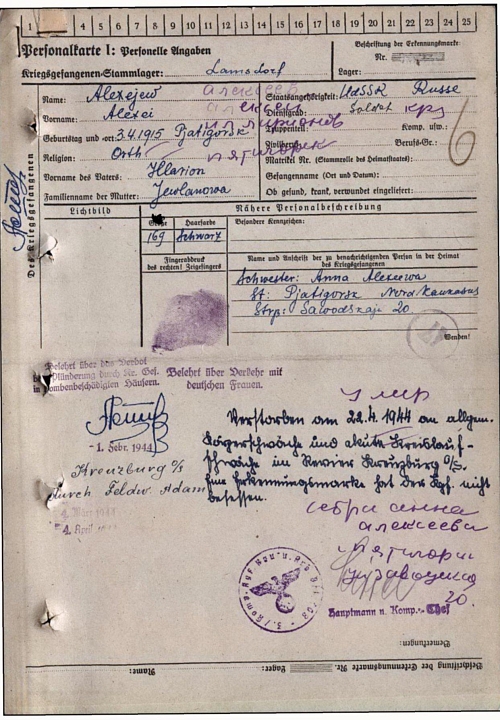 1 2 3 4 5 6 7 8 9 10 11 12 13 14 15 16 17 18 19 20 21 22 23 24 25
Personalkarte I: Personelle Angaben
Kriegsgefangenen-Stammlager: Lamsdorf
Beschriftung der Erkennungsmarke
Nr.
Lager:
Des Kriegsgefangenen
Name: Alexejew алексеев
Vorname: Alexei алексей
Geburtstag und -ort: 3.4.1915 Pjatigorsk
Religion: Orth пятигорск
Vorname des Vaters: Illarion
Familienname der Mutter: Jewlanowa
Staatsangehörigkeit: UdSSR Russe
Dienstgrad: Soldat кр
Truppenteil: Komp. usw.:
Zivilberuf: Berufs-Gr.:
6
Matrikel Nr. (Stammrolle des Heimatstaates):
Gefangennahme (Ort und Datum):
Ob gesund, krank, verwundet eingeliefert:
Lichtbild
Nähere Personalbeschreibung
Grösse Haarfarbe Besondere Kennzeichen:
169 Schwarz
Fingerabdruck
des rechten! Zeigefingers
Name und Anschrift der zu benachrichtigenden Person in der Heimat
des Kriegsgefangenen
Schwester: Anna Alexeewa
St: Pjatigorsk Nord/Kaukasus
Strp: Sawodskaja 20
Wenden!
Belehrt über das Verbot
Plünderung durch Kr. Gef.
in bombenbeschädigten Häusern.
Belehrt über Verkehr mit
deutschen Frauen.
-1. Febr. 1944
Kreuzburg o/s
durch Feldw. Adam
4. März 1944
4. April
умер
Verstorben am 22.4.1944 an allgem.
Körperschwäche und akute Kreislauf-
schwäche im Revier Kreuzburg O/S.
Eine Erkennungsmarke hat der Kgf. nicht
besessen.
анна
алексеева
20.
Hauptmann u. Komp.-Chef
Bemerkungen:
Beschriftung der Erkennungsmarke Nr. Lager: Name: